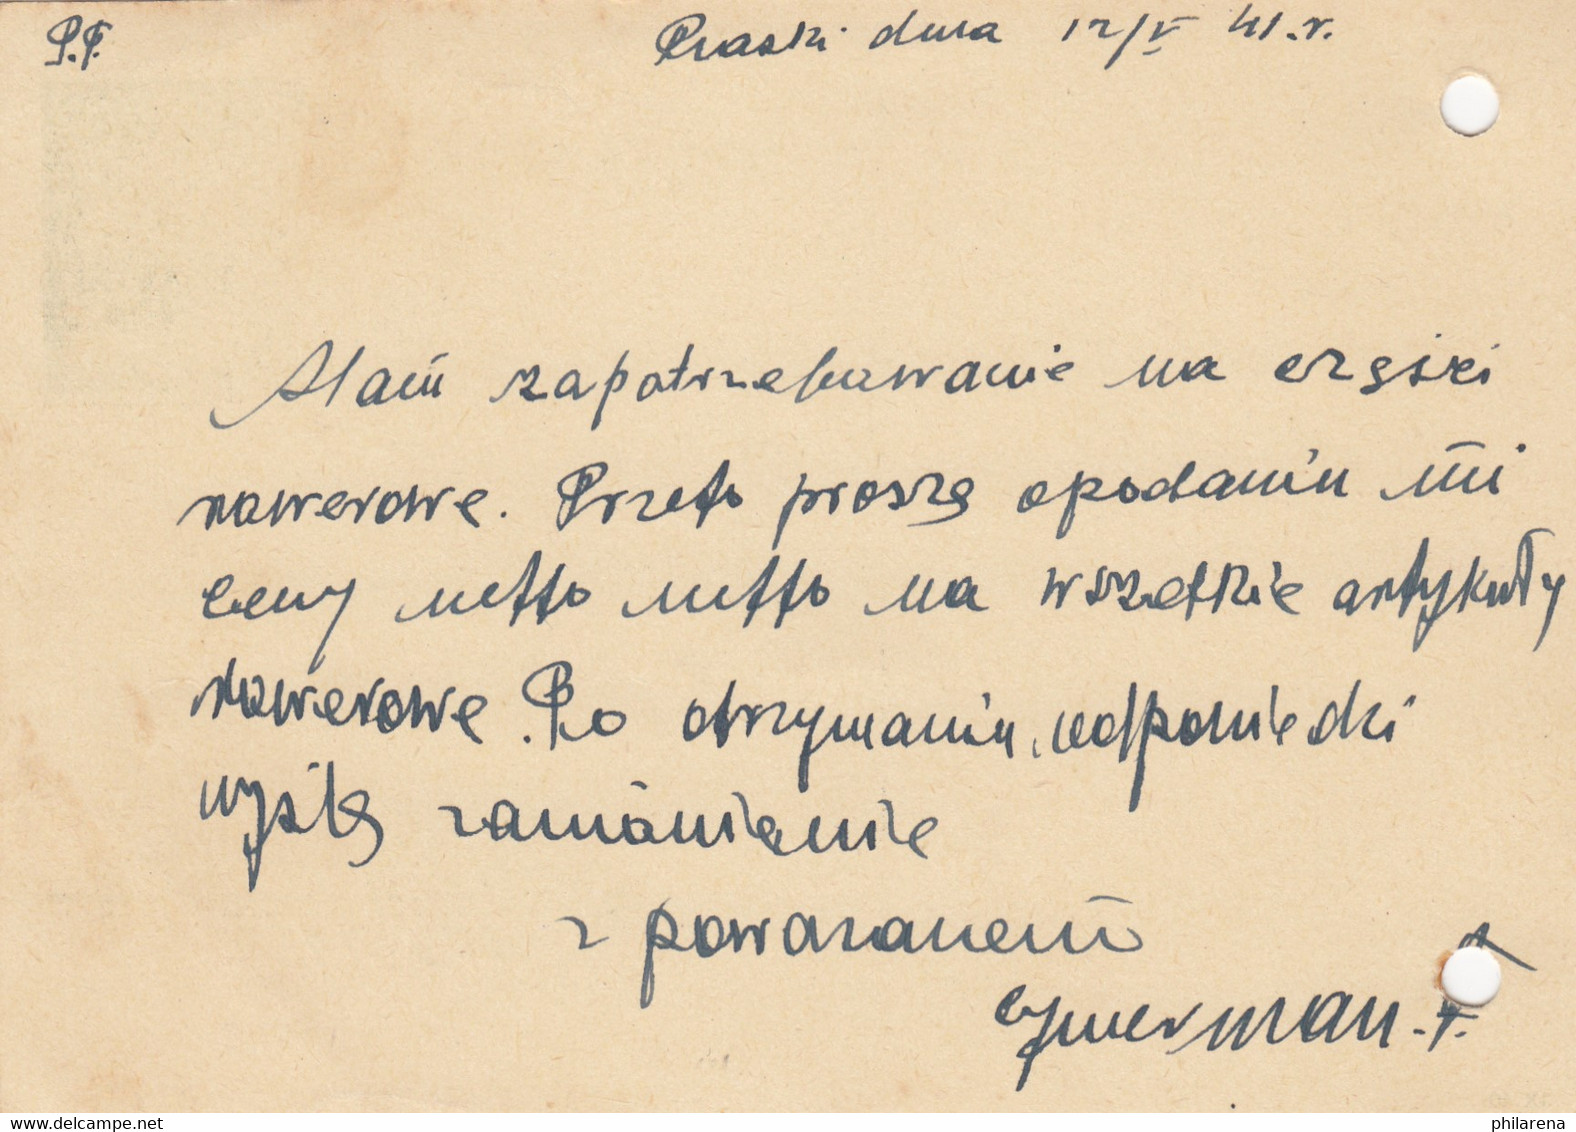 P.F.
Piaski dnia 12/V 41.r.
Mam zapotrzebowanie na części
rowerowe. Przeto proszę opodaniu mi
ceny netto netto na wszelkie artykuły
rowerowe. Po otrzymaniu odpowiedzi
wyślę zamówienie
z poważaniem
Cymerman. F.
philarena.com/www.delcampe.net
philarena